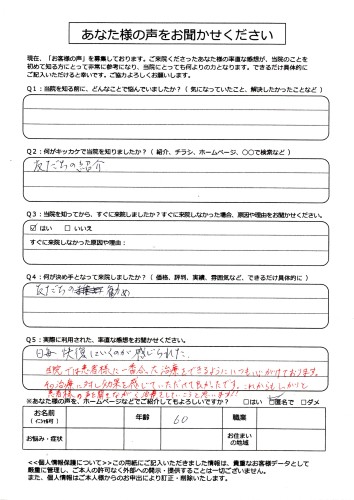 あなた様の声をお聞かせください
現在、「お客様の声」を募集しております。ご来院くださったあなた様の率直な感想が、当院のことを
初めて知る方にとって非常に参考になり、当院にとっても何よりの力となります。できるだけ具体的に
ご記入いただけると幸いです。ご協力よろしくお願いします。
Q1：当院を知る前に、どんなことで悩んでいましたか？（ 気になっていたこと、解決したかったことなど ）
Q2：何がキッカケで当院を知りましたか？（ 紹介、チラシ、ホームページ、〇〇で検索など ）
友だちの紹介
Q3：当院を知ってから、すぐに来院しましたか？すぐに来院しなかった場合、原因や理由をお聞かせください。
☑ はい □ いいえ
すぐに来院しなかった原因や理由：
Q4：何が決め手となって来院しましたか？（ 価格、評判、実績、雰囲気など、できるだけ具体的に ）
友だちの 勧め
Q5：実際に利用された、率直な感想をお聞かせください。
日毎 快復にいくのが 感じられた.
当院では患者様に一番合った治療をできるようにいつも心がけております。
その治療に対し効果を感じていただけて良かったです。これからもしっかりと
患者様の 治療をしていこうと思います!!
※あなた様の声を、ホームページなどでご紹介してもよろしいですか？ □はい ☑匿名で □ダメ
お名前
（ｲﾆｼｬﾙ可）
年齢
60
職業
お悩み・症状
お住まい
の地域
<<個人情報保護について>>この用紙にご記入いただきました情報は、貴重なお客様データとして
厳重に管理し、ご本人の許可なく外部への開示・提供することは一切ございません。
また、個人情報はご本人様からのお申出により訂正・削除いたします。